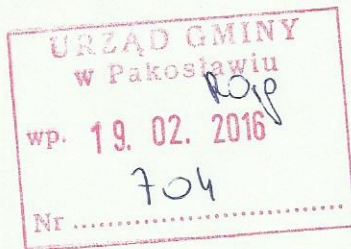 URZĄD GMINY
w Pakosławiu
wp. 19. 02. 2016
704
Nr